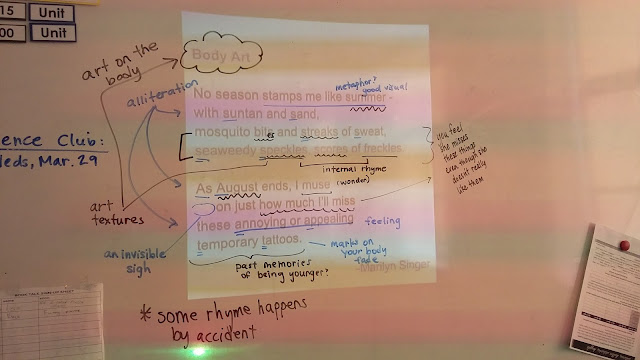 15 Unit
00 Unit
ence Club:
Weds, Mar. 29
art on the
body
Body Art
alliteration
metaphor?
good visual
No season stamps me like summer -
with suntan and sand,
mosquito bites and streaks of sweat,
seaweedy speckles, scores of freckles.
internal rhyme
As August ends, I muse
(wonder)
on just how much I'll miss
these annoying or appealing
temporary tattoos.
-Marilyn Singer
feeling
marks on
your body
fade
you feel
she misses
these things
even though she
doesn't really
like them
art
textures
an invisible
sigh
past memories
of being younger?
* some rhyme happens
by accident